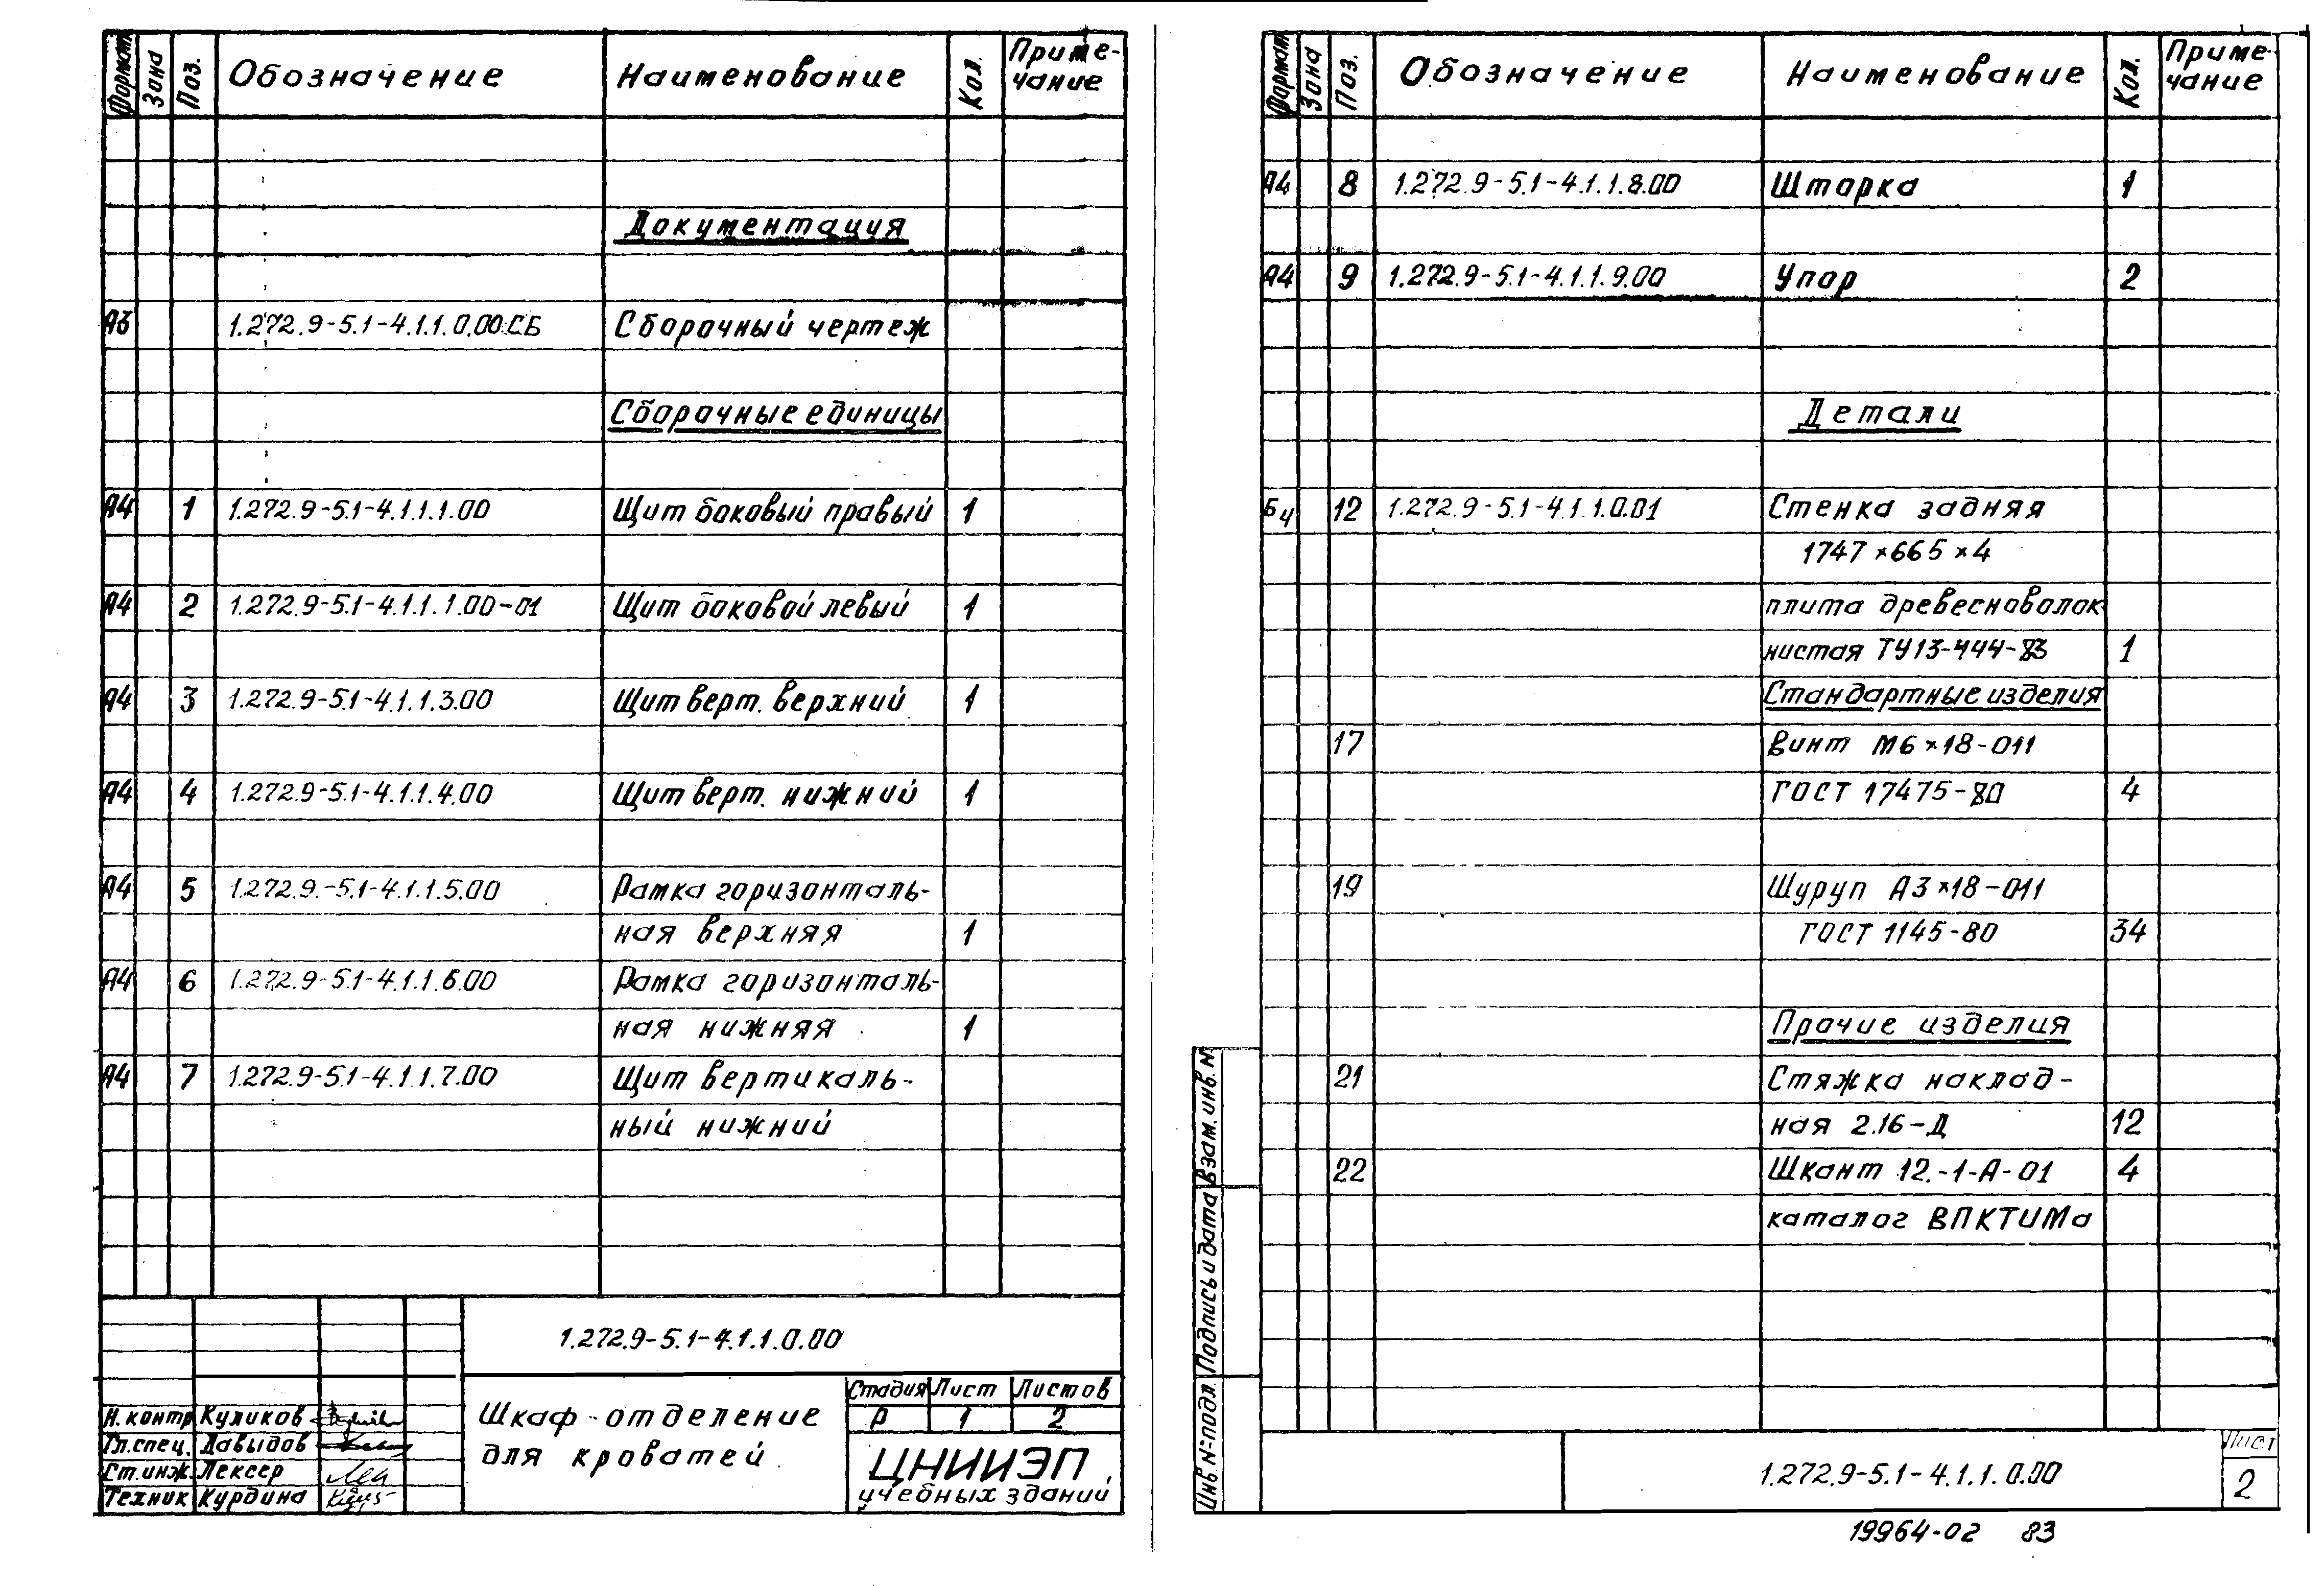 Формат Зона Поз. Обозначение Наименование Кол. Приме-
чание
Документация
А3 1.272.9-5.1-4.1.1.0.00.СБ Сборочный чертеж
Сборочные единицы
А4 1 1.272.9-5.1-4.1.1.1.00 Щит боковый правый 1
А4 2 1.272.9-5.1-4.1.1.1.00-01 Щит боковой левый 1
А4 3 1.272.9-5.1-4.1.1.3.00 Щит верт. верхний 1
А4 4 1.272.9-5.1-4.1.1.4.00 Щит верт. нижний 1
А4 5 1.272.9.-5.1-4.1.1.5.00 Рамка горизонталь-
ная верхняя 1
А4 6 1.272.9-5.1-4.1.1.6.00 Рамка горизонталь-
ная нижняя 1
А4 7 1.272.9-5.1-4.1.1.7.00 Щит вертикаль-
ный нижний
1.272.9-5.1-4.1.1.0.00
Н.контр. Куликов
Гл.спец. Давыдов
Ст.инж. Лексер
Техник Курдина
Шкаф-отделение
для кроватей
Стадия Лист Листов
Р 1 2
ЦНИИЭП
учебных зданий
Формат Зона Поз. Обозначение Наименование Кол. Приме-
чание
А4 8 1.272.9-5.1-4.1.1.8.00 Шторка 1
А4 9 1.272.9-5.1-4.1.1.9.00 Упор 2
Детали
Б4 12 1.272.9-5.1-4.1.1.0.01 Стенка задняя
1747×665×4
плита древесноволок
нистая ТУ13-444-83 1
Стандартные изделия
17 Винт М6×18-011
ГОСТ 17475-80 4
19 Шуруп А3×18-011
ГОСТ 1145-80 34
Прочие изделия
21 Стяжка наклад-
ная 2.16-Д 12
22 Шкант 12.-1-А-01 4
каталог ВПКТИМа
Инв.№подл. Подпись и дата Взам.инв.№
1.272.9-5.1-4.1.1.0.00
Лист
2
19964-02 83